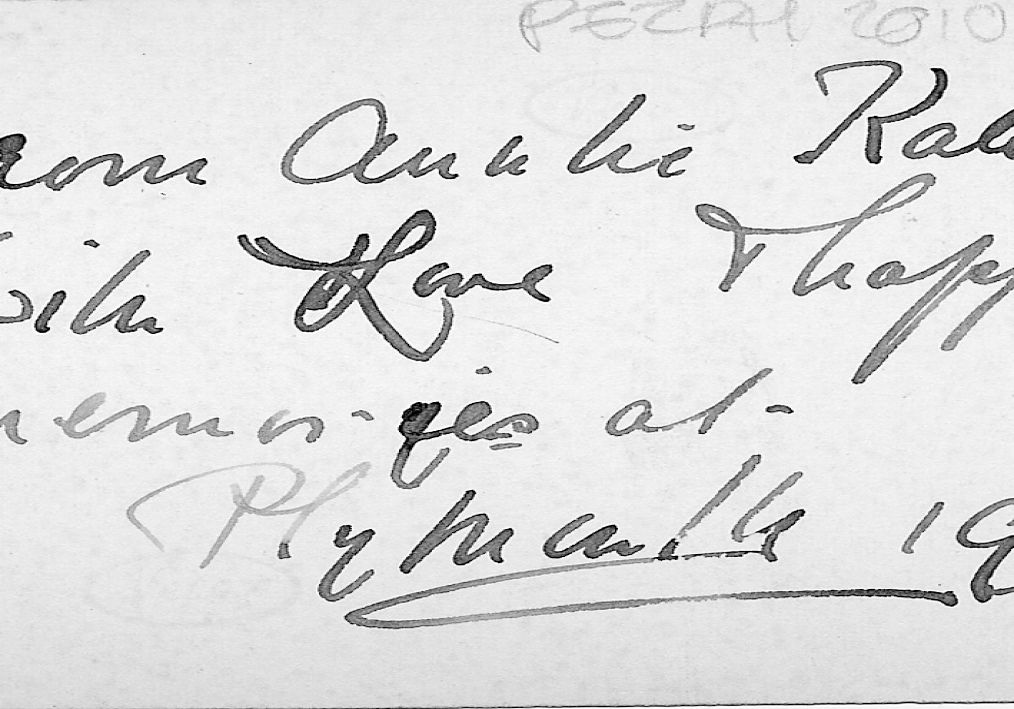 PEZDA 2010
rom Auntie Kat
with Love & happ
memories at-
Plymouth 19